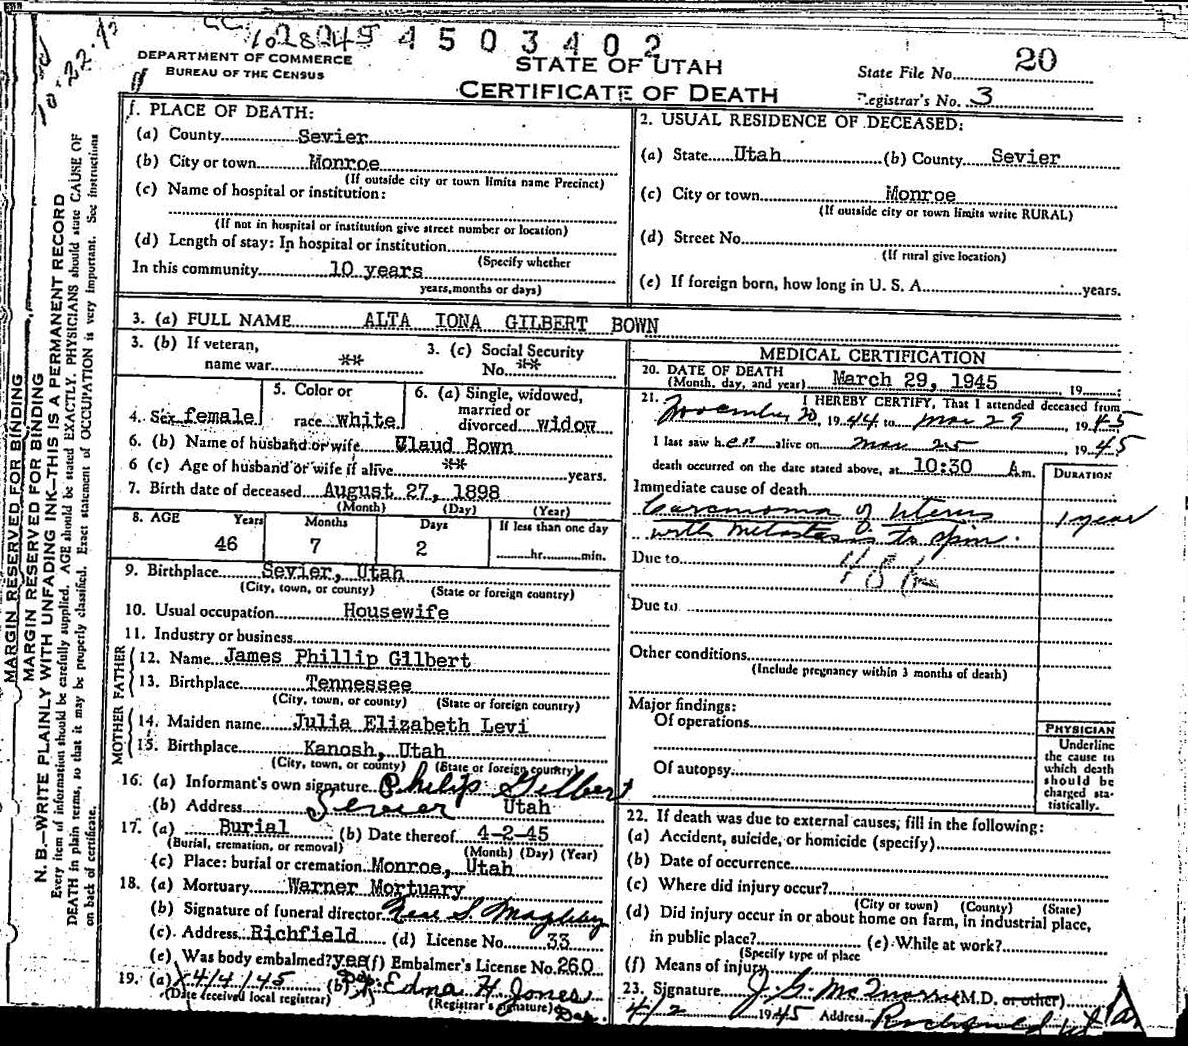 1028245 4503402
DEPARTMENT OF COMMERCE
BUREAU OF THE CENSUS
STATE OF UTAH
CERTIFICATE OF DEATH
State File No. 20
Registrar's No. 3
10-22-
MARGIN RESERVED FOR BINDING
MARGIN RESERVED FOR BINDING
N. B.—WRITE PLAINLY WITH UNFADING INK—THIS IS A PERMANENT RECORD
Every item of information should be carefully supplied. AGE should be stated EXACTLY. PHYSICIANS should state CAUSE OF
DEATH in plain terms, so that it may be properly classified. Exact statement of OCCUPATION is very important. See instructions
on back of certificate.
1. PLACE OF DEATH:
(a) County Sevier
(b) City or town Monroe
(If outside city or town limits name Precinct)
(c) Name of hospital or institution:
(If not in hospital or institution give street number or location)
(d) Length of stay: In hospital or institution
(Specify whether
In this community 10 years
years, months or days)
2. USUAL RESIDENCE OF DECEASED:
(a) State Utah (b) County Sevier
(c) City or town Monroe
(If outside city or town limits write RURAL)
(d) Street No.
(If rural give location)
(e) If foreign born, how long in U. S. A. years.
3. (a) FULL NAME ALTA IONA GILBERT BOWN
3. (b) If veteran,
name war **
3. (c) Social Security
No. **
4. Sex female
5. Color or
race white
6. (a) Single, widowed,
married or
divorced widow
6. (b) Name of husband or wife Claud Bown
6 (c) Age of husband or wife if alive ** years.
7. Birth date of deceased August 27, 1898
(Month) (Day) (Year)
8. AGE Years Months Days If less than one day
46 7 2 hr. min.
9. Birthplace Sevier, Utah
(City, town, or county) (State or foreign country)
10. Usual occupation Housewife
11. Industry or business
FATHER
12. Name James Phillip Gilbert
13. Birthplace Tennessee
(City, town, or county) (State or foreign country)
MOTHER
14. Maiden name Julia Elizabeth Levi
15. Birthplace Kanosh, Utah
(City, town, or county) (State or foreign country)
16. (a) Informant's own signature Philip Gilbert
(b) Address Sevier Utah
17. (a) Burial (b) Date thereof 4-2-45
(Burial, cremation, or removal) (Month) (Day) (Year)
(c) Place: burial or cremation Monroe, Utah
18. (a) Mortuary Warner Mortuary
(b) Signature of funeral director S. Magleby
(c) Address Richfield (d) License No. 33
(e) Was body embalmed? yes (f) Embalmer's License No. 260
19. (a) 4/4/45 (b) Edna H. Jones
(Date received local registrar) (Registrar's signature) Dep.
MEDICAL CERTIFICATION
20. DATE OF DEATH
(Month, day, and year) March 29, 1945 19
21. I HEREBY CERTIFY, That I attended deceased from
November 20, 1944 to Mar 29 1945
I last saw her alive on Mar 25 1945
death occurred on the date stated above, at 10:30 A m.
DURATION
Immediate cause of death
Carcinoma of Uterus 1 year
with metastasis to spine.
Due to 48
Due to
Other conditions
(Include pregnancy within 3 months of death)
Major findings:
Of operations
Of autopsy
PHYSICIAN
Underline
the cause to
which death
should be
charged sta-
tistically.
22. If death was due to external causes, fill in the following:
(a) Accident, suicide, or homicide (specify)
(b) Date of occurrence
(c) Where did injury occur?
(City or town) (County) (State)
(d) Did injury occur in or about home on farm, in industrial place,
in public place? (e) While at work?
(Specify type of place
(f) Means of injury
23. Signature J. G. (M.D. or other)
4/2 1945 Address Richfield Ut